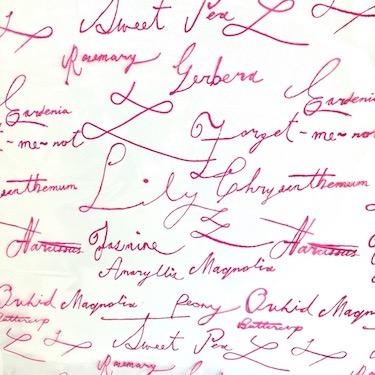 Sweet Pea
Rosemary
Gerbera
Gardenia
Gardenia
- me - not
Forget - me - not
Lily
Chrysanthemum
anthemum
Narcissus
Jasmine
Narcissus
Amaryllis Magnolia
Orchid Magnolia
Peony
Orchid Magn
Buttercup
Buttercup
Sweet Pea
Rosemary